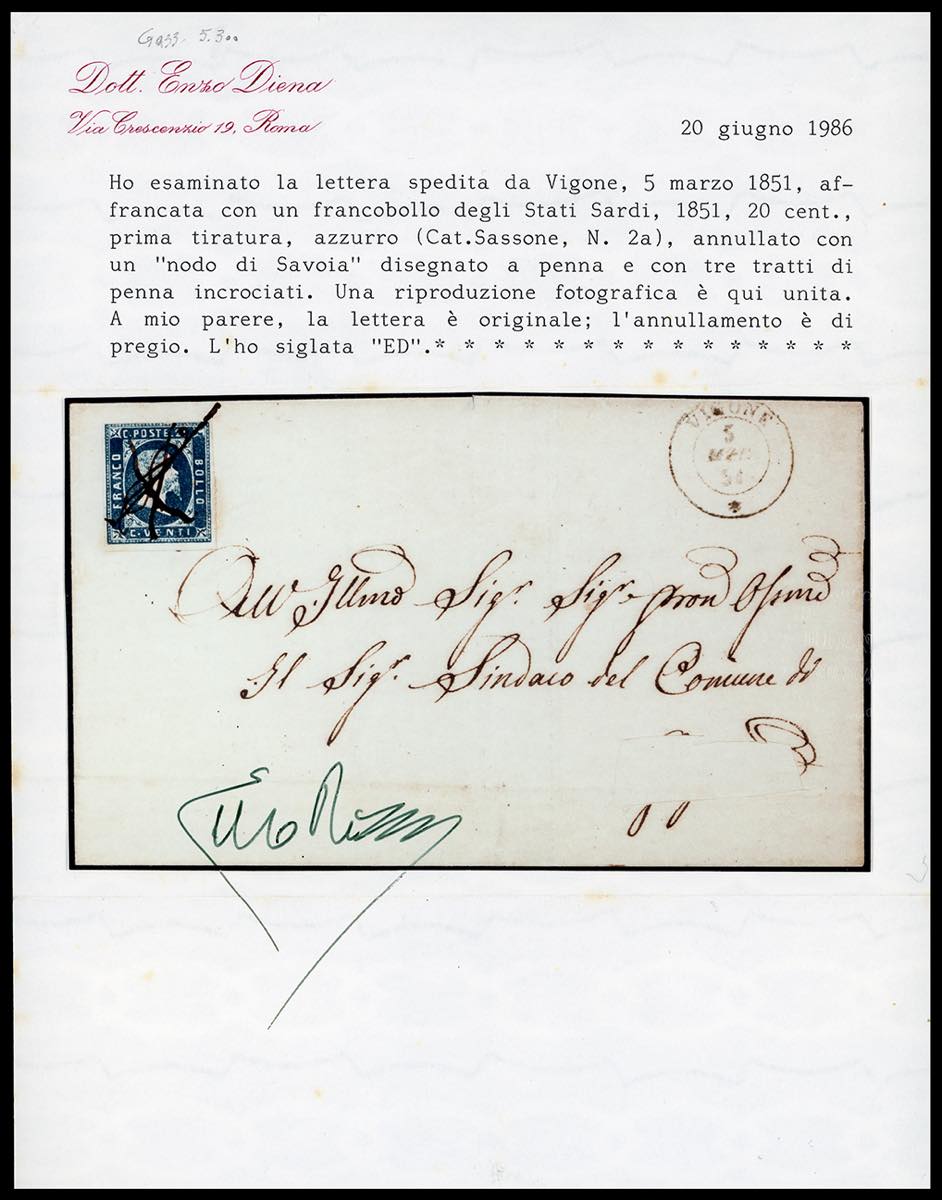 5.300
Dott. Enzo Diena
Via Crescenzio 19, Roma
20 giugno 1986
Ho esaminato la lettera spedita da Vigone, 5 marzo 1851, af-
francata con un francobollo degli Stati Sardi, 1851, 20 cent.,
prima tiratura, azzurro (Cat.Sassone, N. 2a), annullato con
un "nodo di Savoia" disegnato a penna e con tre tratti di
penna incrociati. Una riproduzione fotografica è qui unita.
A mio parere, la lettera è originale; l'annullamento è di
pregio. L'ho siglata "ED".* * * * * * * * * * * * * * *
C. POSTE
FRANCO
BOLLO
C. VENTI
VIGONE
5
MAR
51
All' Illmo Sigr. Sigr. pron
Il Sigr. Sindaco del Comune di